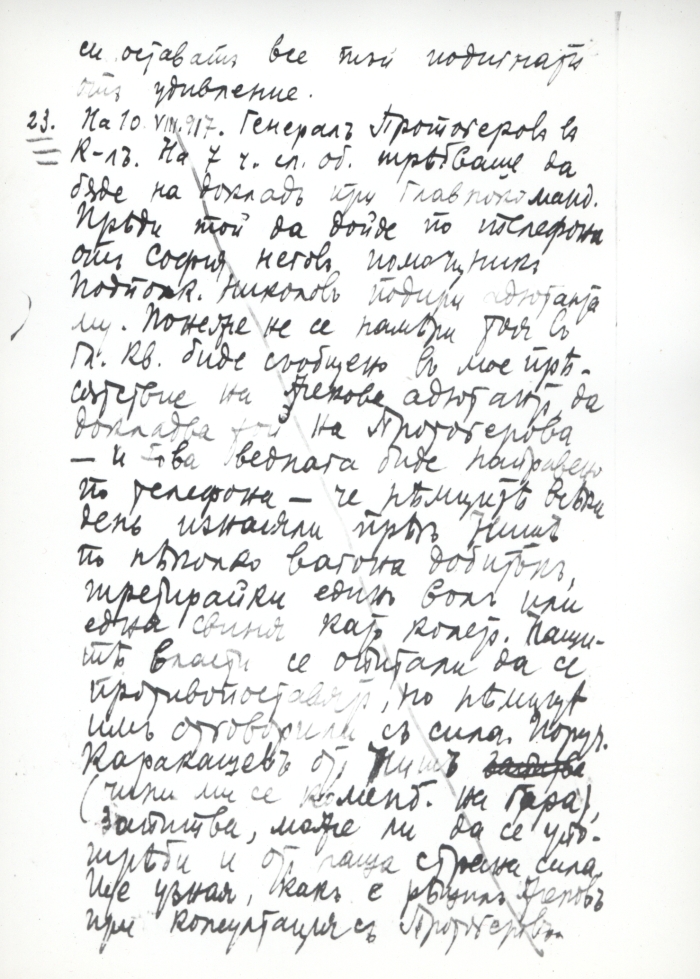 си оставатъ все тъй подигнати
отъ удивление.
23. На 10 VIII.917. Генералъ Протогеровъ въ
К-лъ. На 7 ч. сл. об. трѣбваше да
бѫде на докладъ при Главнокоманд.
Прѣди той да дойде по телефона
отъ София неговъ помощникъ
Подполк. Николовъ подири адютанта
му. Понеже не се намѣри тоя въ
Гл. Кв. биде съобщено въ мое при-
сѫтствие на Жекова адютантъ, да
докладва той на Протогерова
— и това веднага биде направено
по телефона — че нѣмцитѣ всѣки
день изнасяли прѣзъ Нишъ
по нѣколко вагона добитъкъ,
третирайки единъ волъ или
една свиня като колетъ. Наши-
тѣ власти се опитали да се
противопоставятъ, но нѣмцитѣ
имъ отговорили съ сила. Поруч.
Каракашевъ отъ Нишъ
(чини ми се комендт. на Гара),
запитва, може ли да се упо-
трѣби и отъ наша страна сила.
Ще узная, какъ е рѣшилъ Жековъ
при консултация съ Протогеровъ.